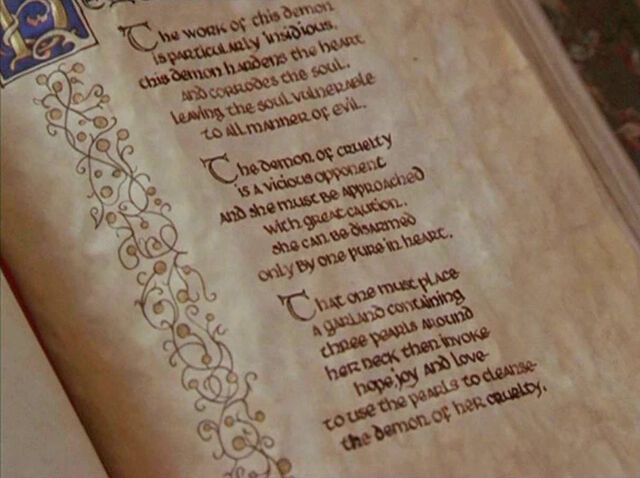 The work of this demon
is particularly insidious.
this demon hardens the heart
and corrodes the soul.
leaving the soul vulnerable
to all manner of evil.
The demon of cruelty
is a vicious opponent
and she must be approached
with great caution.
she can be disarmed
only by one pure in heart.
That one must place
a garland containing
three pearls around
her neck then invoke
hope, joy and love
to use the pearls to cleanse
the demon of her cruelty.